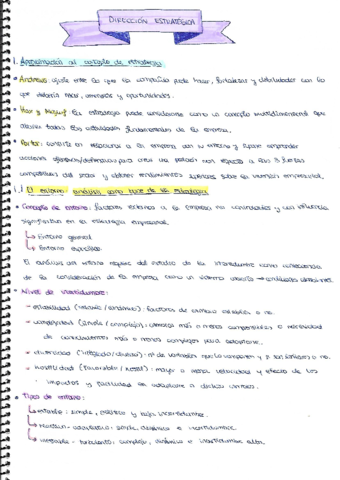 DIRECCIÓN ESTRATÉGICA
1. Aproximación al concepto de estrategia
• Andrews: ajuste entre lo que la compañía puede hacer, fortalezas y debilidades con lo
que debería hacer, amenazas y oportunidades.
• Hax y Majluf: la estrategia puede considerarse como un concepto multidimensional que
abarca todas las actividades fundamentales de la empresa.
• Porter: consiste en relacionar a la empresa con su entorno y supone emprender
acciones ofensivas/defensivas para crear una posición con respecto a las 5 fuerzas
competitivas del sector y obtener rendimientos sobre la inversión empresarial.
1.1 El entorno: análisis como base de las estrategias
• Concepto de entorno: factores externos a la empresa no controlables y una influencia
significativa en la estrategia empresarial.
↳ Entorno general
↳ Entorno específico.
El análisis del entorno requiere del estudio de la incertidumbre como consecuencia
de la consideración de la empresa como un sistema abierto → cambios
• Nivel de incertidumbre:
→ estabilidad (estable/dinámico): factores de cambio estables o no.
→ complejidad (simple/complejo): abarca más o menos componentes o necesidad
de conocimientos más o menos complejos para
→ diversidad (integrado/diverso): nº de variables que lo componen y si son similares o no.
→ hostilidad (favorable/hostil): mayor o menor velocidad y efecto de los
impactos y facilidad en adaptarse a dichos
• Tipos de entorno:
↳ estable: simple, estático y baja incertidumbre.
↳ reactivo-adaptativo: simple, dinámico e incertidumbre
↳ inestable-turbulento: complejo, dinámico e incertidumbre alta.